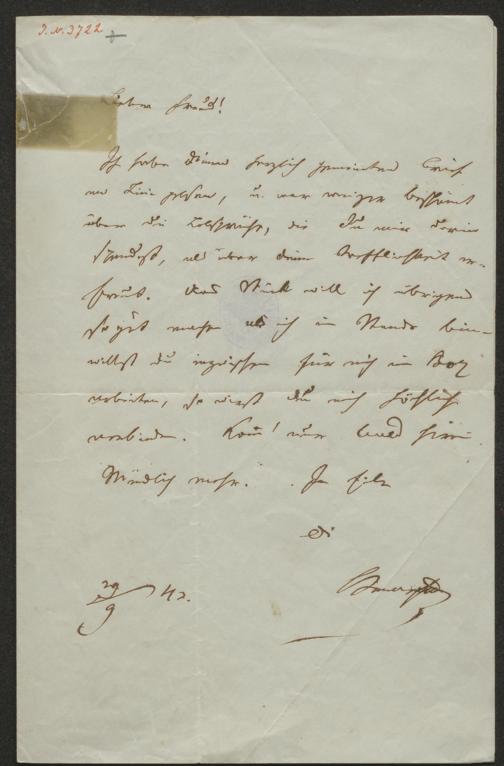 I. N. 3722
Lieber Freund!
Ich habe Deinen herzlich gemeinten Brief
gelesen, u. war weniger beschämt
über die Lobsprüche, die Du mir darin
spendest, als über Deine Trefflichkeit er-
freut. Das Stück will ich übrigens
so gut machen als ich im Stande bin –
willst Du inzwischen für mich ein
arbeiten, so wirst Du mich höchlich
verbinden. Komm' nur bald
Mündlich mehr. In Eile
Dein
Bauernfeld
29/9 42.